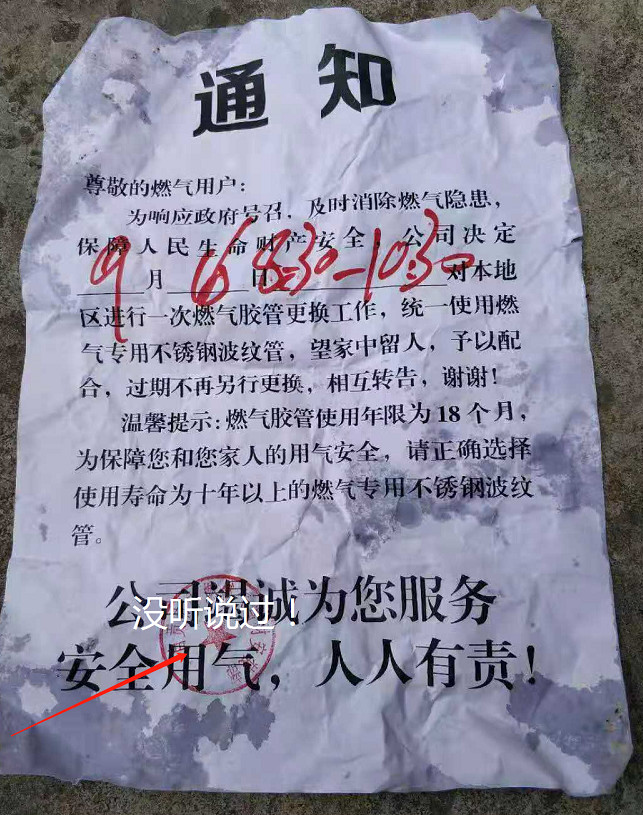 通知
尊敬的燃气用户：
为响应政府号召，及时消除燃气隐患，
保障人民生命财产安全，公司决定
9月6日8:30-10:30对本地
区进行一次燃气胶管更换工作，统一使用燃
气专用不锈钢波纹管，望家中留人，予以配
合，过期不再另行更换，相互转告，谢谢！
温馨提示：燃气胶管使用年限为18个月，
为保障您和您家人的用气安全，请正确选择
使用寿命为十年以上的燃气专用不锈钢波纹
管。
公司竭诚为您服务
没听说过！
安全用气，人人有责！